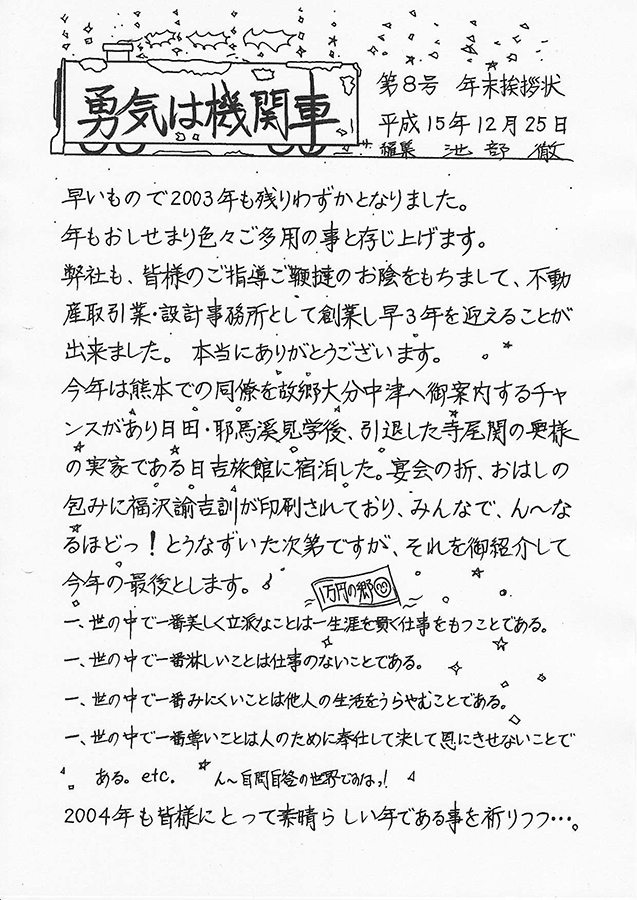 勇気は機関車
第8号 年末挨拶状
平成15年12月25日
編集 池部 徹
早いもので2003年も残りわずかとなりました。
年もおしせまり色々ご多用の事と存じ上げます。
弊社も、皆様のご指導ご鞭撻のお陰をもちまして、不動
産取引業・設計事務所として創業し早3年を迎えることが
出来ました。 本当にありがとうございます。
今年は熊本での同僚を故郷大分中津へ御案内するチャ
ンスがあり日田・耶馬溪見学後、引退した寺尾関の奥様
の実家である日吉旅館に宿泊した。宴会の折、おはしの
包みに福沢諭吉訓が印刷されており、みんなで、ん〜な
るほどっ!とうなずいた次第ですが、それを御紹介して
今年の最後とします。
1万円の郷
一、世の中で一番美しく立派なことは一生涯を貫く仕事をもつことである。
一、世の中で一番淋しいことは仕事のないことである。
一、世の中で一番みにくいことは他人の生活をうらやむことである。
一、世の中で一番尊いことは人のために奉仕して決して恩にきせないことで
ある。etc. ん〜自問自答の世界ですねっ!
2004年も皆様にとって素晴らしい年である事を祈りつつ…。